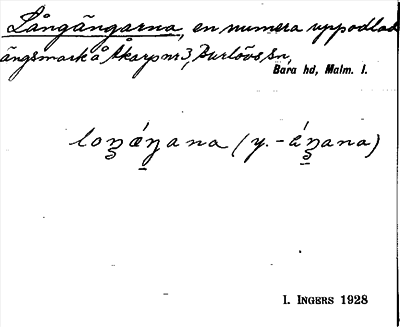 Långängarna, en numera uppodlad
ängsmark å Åkarp nr 3, Burlövs sn,
Bara hd, Malm. l.
loŋǽŋana (y. -áŋana)
I. INGERS 1928